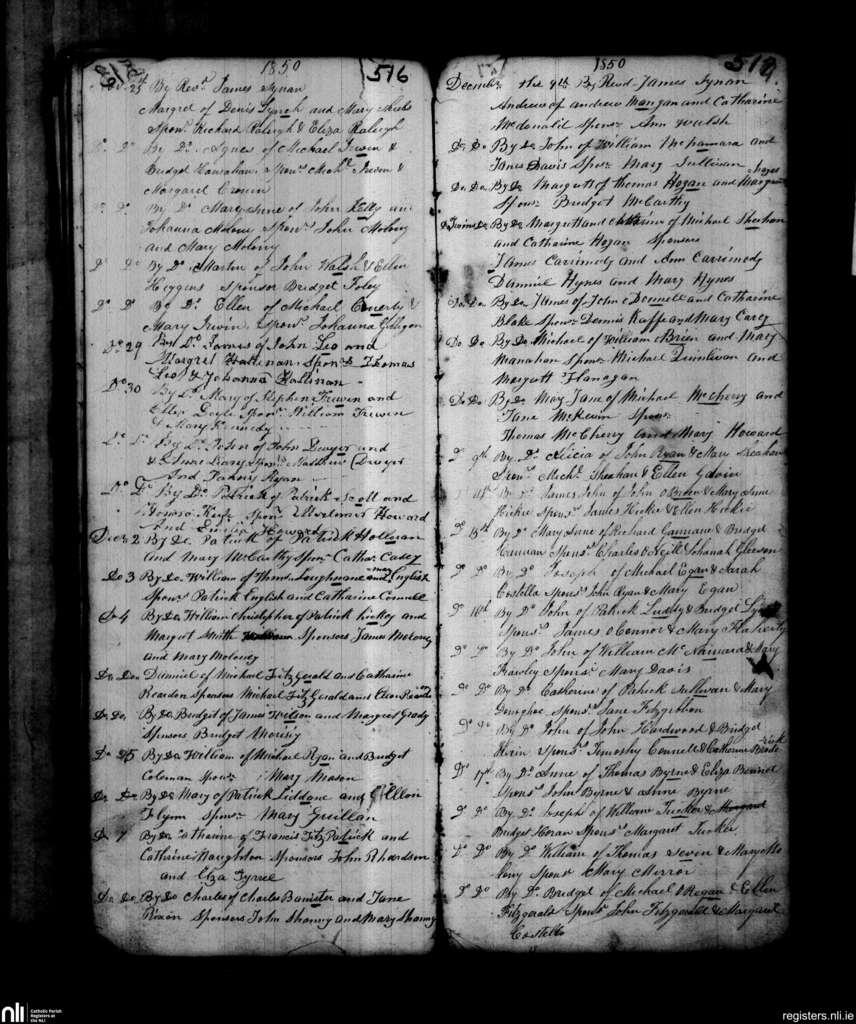 1850 516
25th By Revd James Tynan
Margret of Denis Lynch and Mary
Sponrs Richard Raleigh & Eliza Raleigh
Do By Do Agnes of Michael Irwin &
Bridget Hanrahan Sponrs Michl Irwin &
Margaret Cronin
Do By Do Mary Anne of John Kelly and
Johanna Molony Sponrs John Molony
and Mary Molony
Do Do By Do Martin of John Walsh & Ellen
Higgens Sponsor Bridget Foley
Do Do By Do Ellen of Michael &
Mary Irwin Sponr Johanna
Do 29 By Do James of John Leo and
Margret Hallinan Sponrs Thomas
Leo & Johanna Hallinan
Do 30 By Do Mary of Stephen and
Ellen Doyle Sponrs William
& Mary Kennedy
Do Do By Do John of John Dwyer and
Leary Sponrs Matthew Dwyer
And Ryan
Do Do By Do Patrick of Patrick Scott and
Sponrs Howard
And Howard
Decr 2 By Do Patrick of Patrick Holloran
and Mary McCarthy Sponr Cathr Casey
Do 3 By Do William of Thos Loughnane and Mary English
Sponrs Patrick English and Catharine Connell
Do 4 By Do William Christopher of Patrick and
Margret Smith Sponsors James Molony
and Mary Moloney
Do Do Danniel of Michael FitzGerald and Catharine
Reardon Sponsors Michael FitzGerald and Ellen Reardon
Do Do By Do Bridget of James Wilson and Margret Grady
Sponsors Bridget
Do 5 By Do William of Michael Ryan and Bridget
Coleman Sponr Mary Mason
Do Do By Do Mary of Patrick Liddane and Ellen
Flynn Sponr Mary Quillan
Do 7 By Do Catharine of Francis FitzPatrick and
Cathrine Naughton Sponsors John Rhardson
and Elza Tyrree
Do Do By Do Charles of Charles Banister and Jane
Sponsors John Shanny and Mary Shanny
1850 517
December the 9th By Revd James Tynan
Andrew of Andrew Mangan and Catharine
McDonald Sponsr Ann Walsh
Do Do By Do John of William McNamara and
Jane Davis Sponr Mary Sullivan
Do Do By Do Margrett of Thomas Hogan and Margret Hayes
Sponr Bridget McCarthy
Do Twins Do By Do Margrett and Catharine of Michael Sheehan
and Catharine Hogan Sponsors
James Carrimedy and Ann Carrimedy
Danniel Hynes and Mary Hynes
Do Do By Do James of John Donnell and Catharine
Blake Sponrs Dennis and Mary Carey
Do Do By Do Michael of William Brien and Mary
Manahan Sponrs Michael Quinlivan and
Margrett Flanagan
Do Do By Do Mary Jane of Michael McCherry and
Jane Sponrs
Thomas McCherry and Mary Howard
Do 9th By Do Alicia of John Ryan & Mary Sheahan
Sponrs Michl Sheahan & Ellen
11th By Do James John of John O'Brien & Mary Anne
Hickie Sponrs James Hickie & Ellen Hickie
Do 15th By Do Mary Anne of Richard & Bridget
Sponrs Charles O'Neill & Johanah Gleeson
Do Do By Do Joseph of Michael Egan & Sarah
Costello Sponrs John Ryan & Mary Egan
Do 16th By Do John of Patrick Liddy & Bridget
Sponrs James O'Connor & Mary Flaherty
Do Do By Do John of William McNamara & Mary
Frawley Sponsr Mary Davis
Do Do By Do Catherine of Patrick Sullivan & Mary
Donoghoe Sponsr Jane Fitzgibbon
Do Do By Do John of John Hardwood & Bridget
Sponrs Timothy Connell & Catherine Broderick
Do 17th By Do Anne of Thomas Byrne & Eliza
Sponrs John Byrne & Anne Byrne
Do Do By Do Joseph of William Tucker & Margaret
Bridget Horan Sponsr Margaret Tucker
Do Do By Do William of Thomas & Mary
Sponsr Mary
Do Do By Do Bridget of Michael O'Regan & Ellen
Fitzgerald Sponrs John Fitzgerald & Margaret
Costello
nli
Catholic Parish
Registers at
the NLI
registers.nli.ie